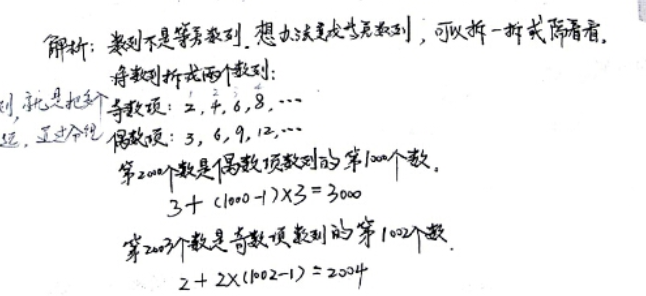 解析：数列不是等差数列，想办法变成等差数列，可以拆一拆或隔着看。
将数列拆成两个数列：
列，就是把多个
奇数项：2，4，6，8，…
运，通过分组
偶数项：3，6，9，12，…
第2000个数是偶数项数列的第1000个数。
3+(1000-1)×3=3000
第2003个数是奇数项数列的第1002个数.
2+2×(1002-1)=2004